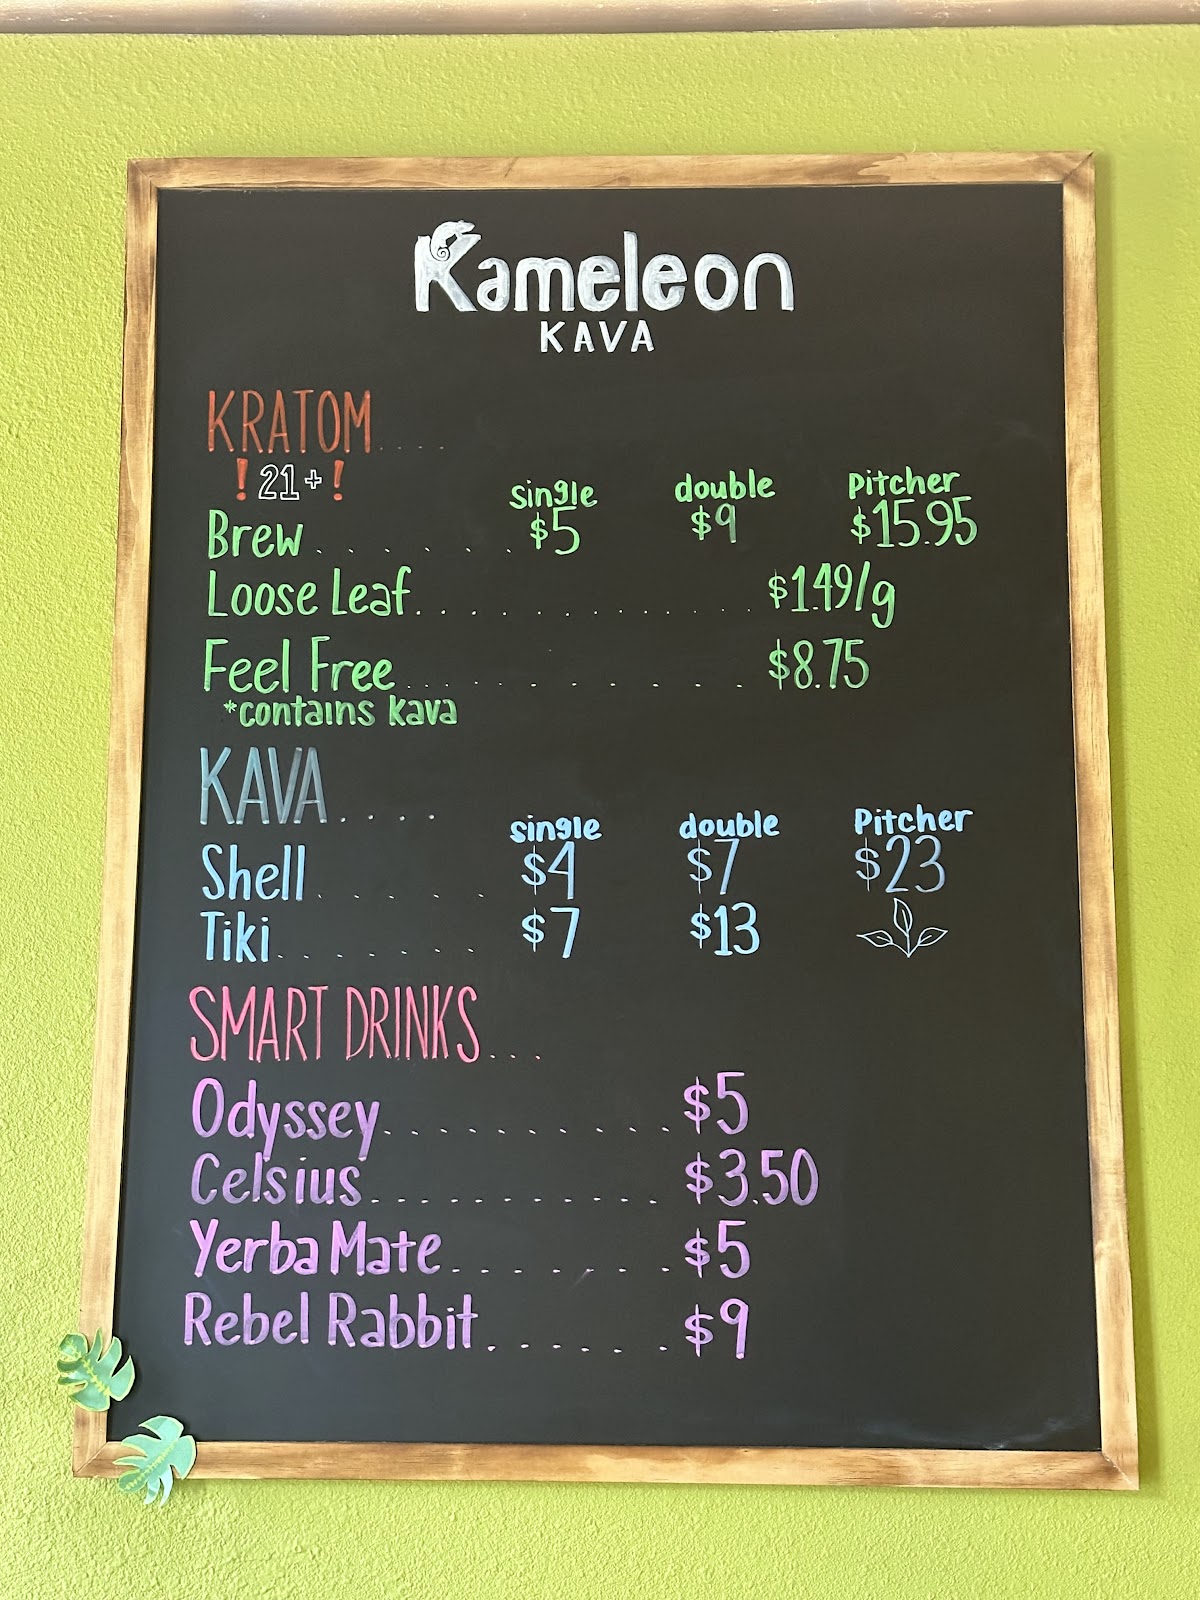 Kameleon
KAVA
KRATOM....
!21+!
single double Pitcher
Brew....... $5 $9 $15.95
Loose Leaf.............. $1.49/g
Feel Free........... $8.75
*contains kava
KAVA....
single double Pitcher
Shell...... $4 $7 $23
Tiki....... $7 $13
SMART DRINKS...
Odyssey.......... $5
Celsius........... $3.50
Yerba Mate....... $5
Rebel Rabbit...... $9